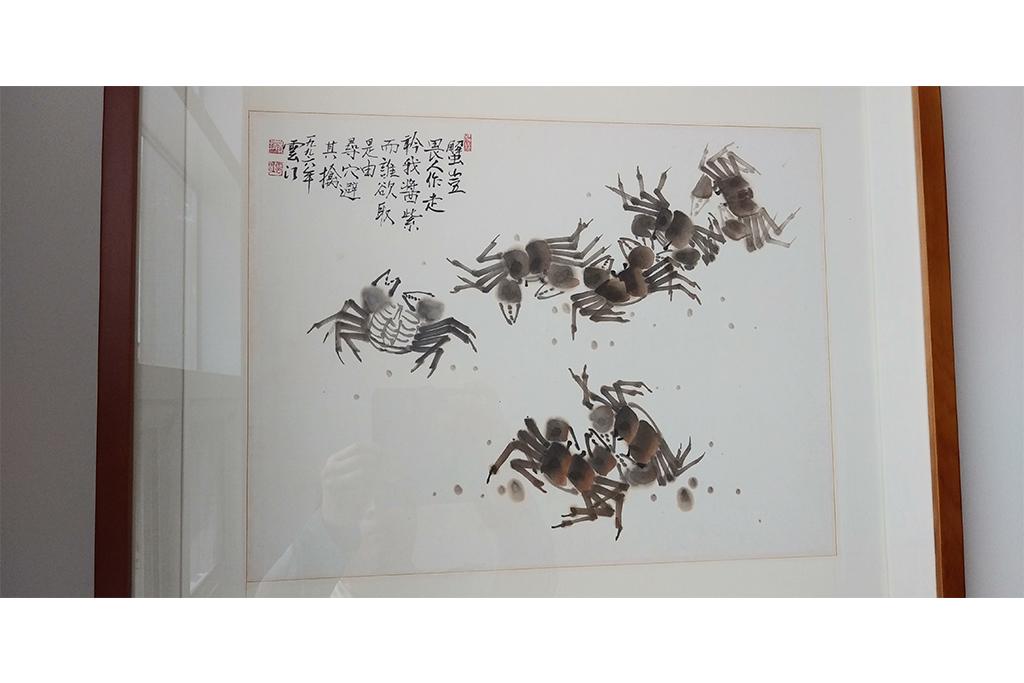 蟹豈
畏人作走
衿我醬紫
而誰欲取
是由
尋穴避
其擒
一九九六年
雲